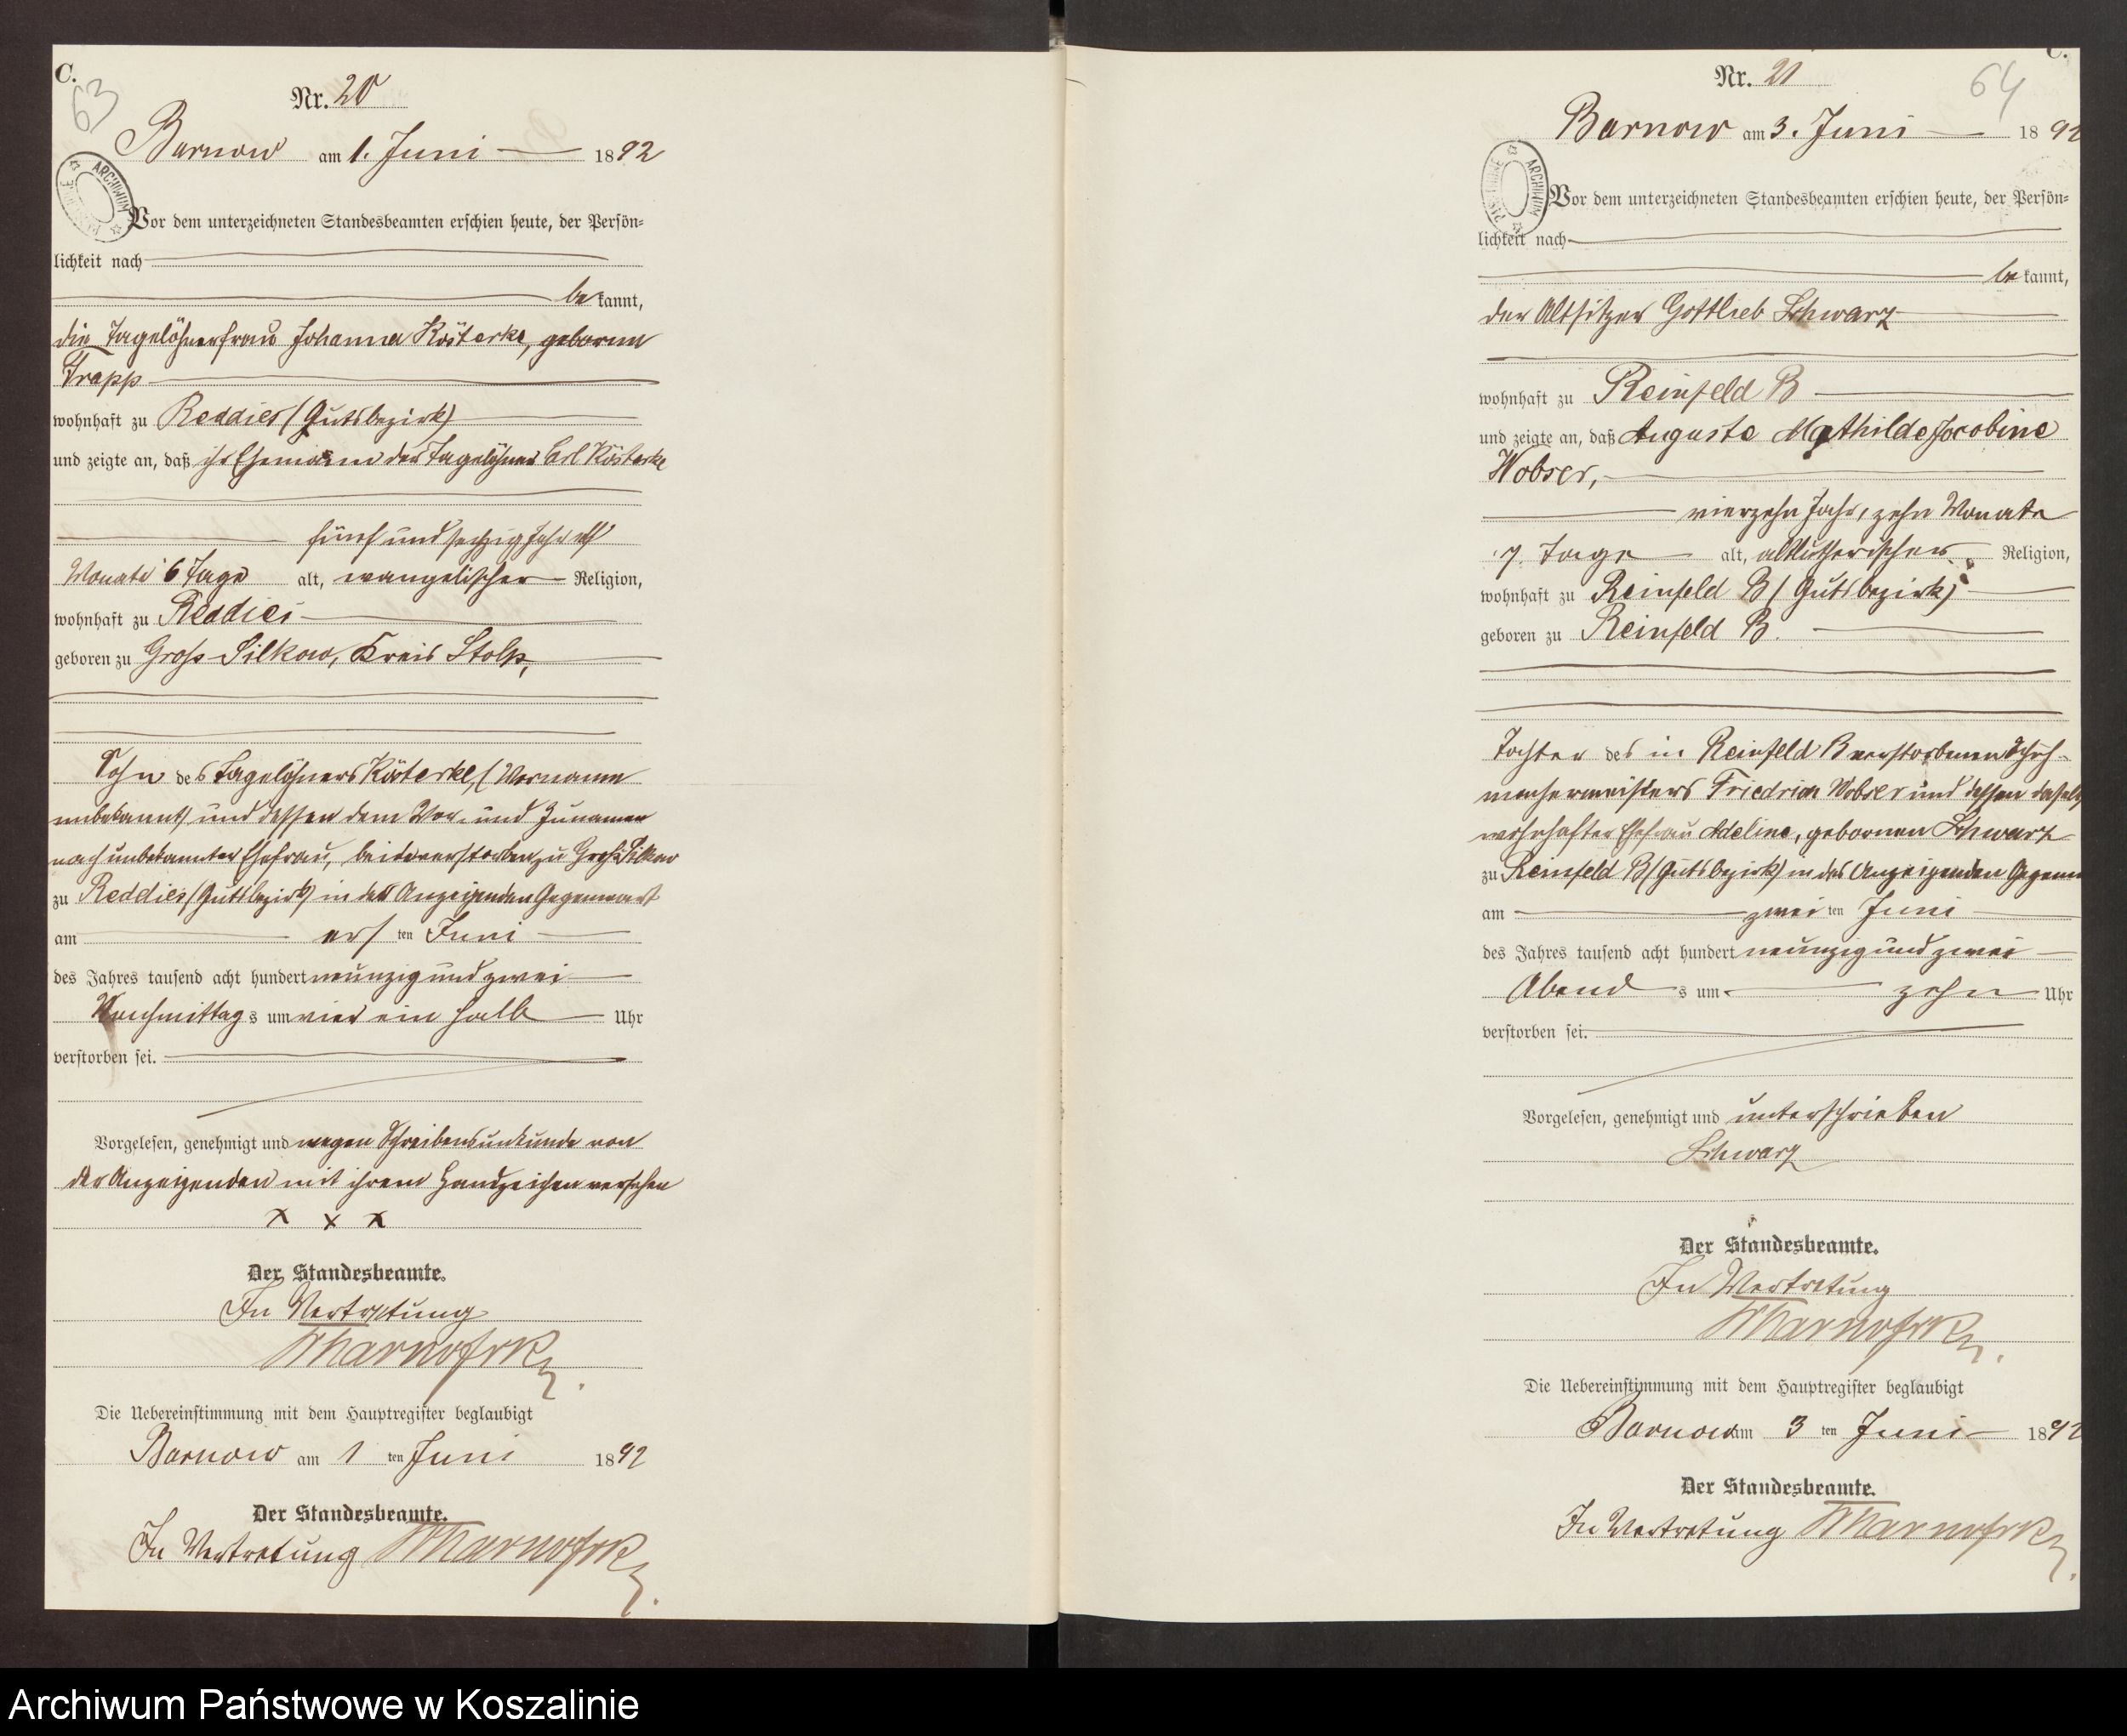 C.
63
Nr. 20
Barnow am 1. Juni 1892
ARCHIWUM
Vor dem unterzeichneten Standesbeamten erschien heute, der Persön=
lichkeit nach
be kannt,
die Tagelöhnerfrau Johanna Kösterke, geborne
Trapp
wohnhaft zu Reddies (Gutsbezirk)
und zeigte an, daß ihr Ehemann der Tagelöhner Carl Kösterke
fünf und sechzig Jahr elf
Monate 6 Tage alt, evangelischer Religion,
wohnhaft zu Reddies
geboren zu Groß Silkow, Kreis Stolp,
Sohn des Tagelöhners Kösterke, (Vorname
unbekannt) und dessen dem Vor- und Zunamen
nach unbekannter Ehefrau, beide verstorben zu Groß Silkow
zu Reddies (Gutsbezirk) in der Anzeigenden Gegenwart
am ersten Juni
des Jahres tausend acht hundert neunzig und zwei
Nachmittags um vier ein halb Uhr
verstorben sei.
Vorgelesen, genehmigt und wegen Schreibensunkunde von
der Anzeigenden mit ihrem Handzeichen versehen
x x x
Der Standesbeamte.
In Vertretung
Die Uebereinstimmung mit dem Hauptregister beglaubigt
Barnow am 1 ten Juni 1892
Der Standesbeamte.
In Vertretung
C.
64
Nr. 21
Barnow am 3. Juni 1892
ARCHIWUM
Vor dem unterzeichneten Standesbeamten erschien heute, der Persön=
lichkeit nach
be kannt,
der Altsitzer Gottlieb Schwarz
wohnhaft zu Reinfeld B
und zeigte an, daß Auguste Mathilde Jacobine
Wobser,
vierzehn Jahr, zehn Monate
7. Tage alt, altlutherischer Religion,
wohnhaft zu Reinfeld B (Gutsbezirk)
geboren zu Reinfeld B.
Tochter des in Reinfeld B verstorbenen Schuh-
machermeisters Friedrich Wobser und dessen daselbst
wohnhafter Ehefrau Adeline, gebornen Schwarz
zu Reinfeld B (Gutsbezirk) in des Anzeigenden Gegenw
am zwei ten Juni
des Jahres tausend acht hundert neunzig und zwei
Abend s um zehn Uhr
verstorben sei.
Vorgelesen, genehmigt und unterschrieben
Schwarz
Der Standesbeamte.
In Vertretung
Die Uebereinstimmung mit dem Hauptregister beglaubigt
Barnow am 3 ten Juni 1892
Der Standesbeamte.
In Vertretung
Archiwum Państwowe w Koszalinie